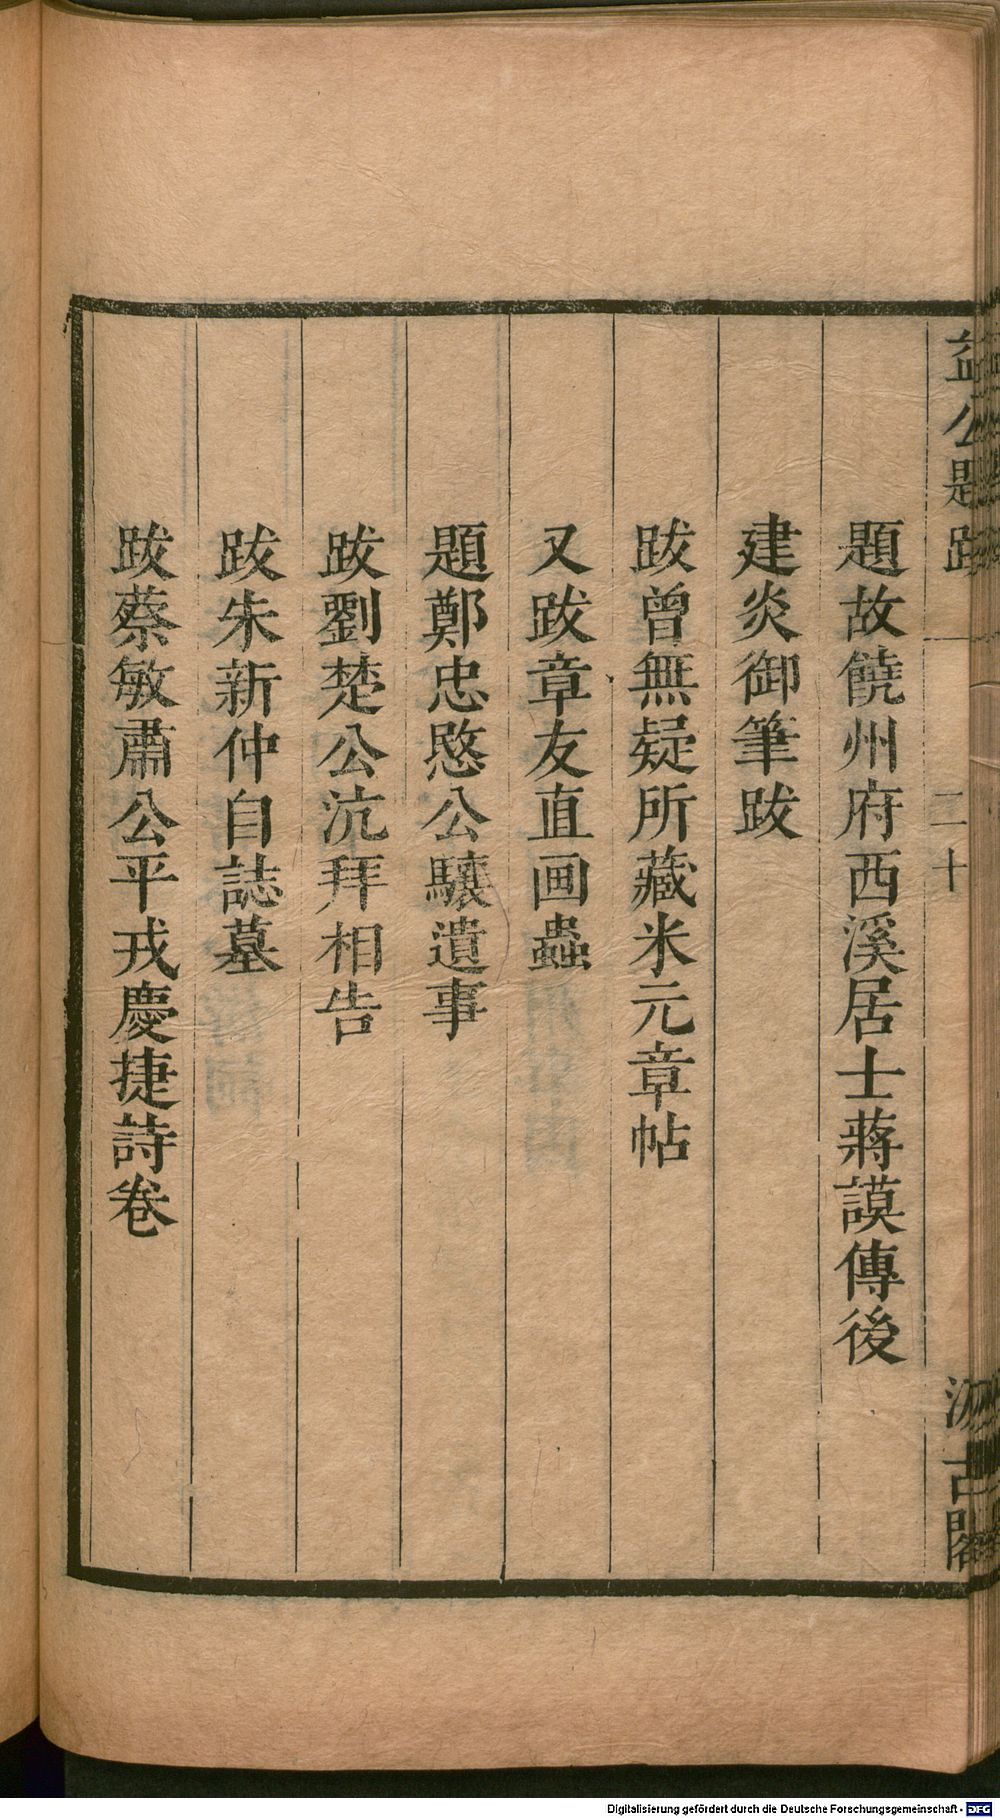 益公題跋
二十
汲古閣
題故饒州府西溪居士蔣謨傳後
建炎御筆跋
跋曾無疑所藏米元章帖
又跋章友直画蟲
題鄭忠愍公驤遺事
跋劉楚公沆拜相告
跋朱新仲自誌墓
跋蔡敏肅公平戎慶捷詩卷
Digitalisierung gefördert durch die Deutsche Forschungsgemeinschaft - DFG